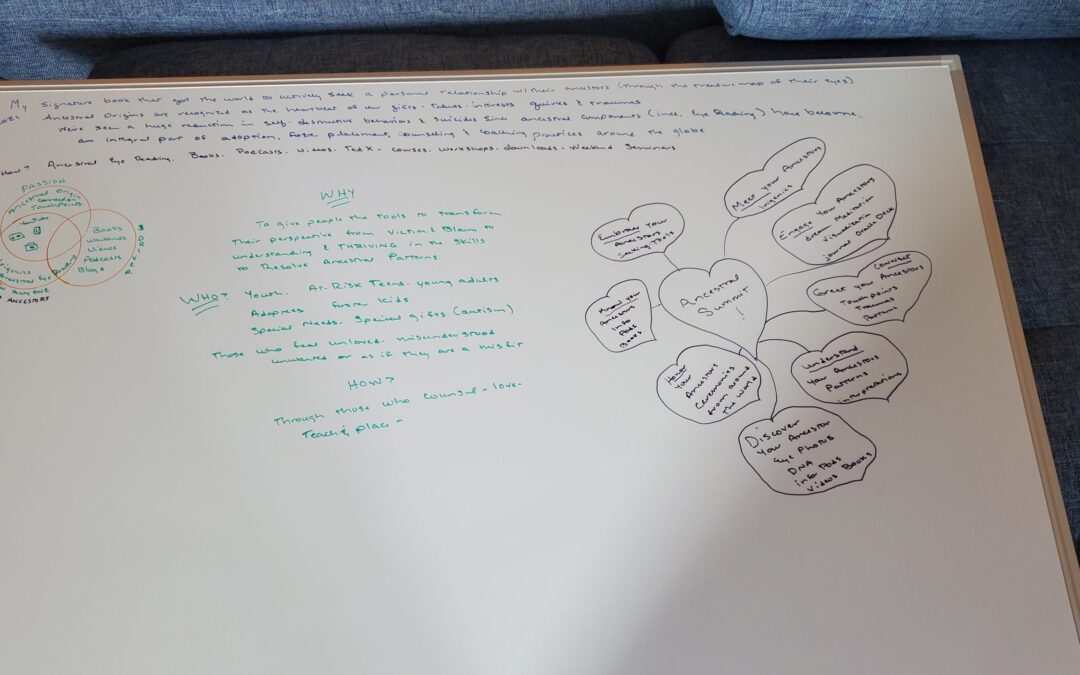 My Signature book that got the world to actively seek a personal relationship w/their ancestors (through the treasure map of their eyes)
Ancestral Origins are recognized as the heartbeat of our gifts. Talents. interests. & traumas
We've seen a huge reduction in self. destructive behaviors & suicides Since ancestral components (incl. Eye Reading) have become
an integral part of adoption. foster placement, counseling & coaching practices around the globe
How? Ancestral Eye Reading. Books. Podcasts. videos. Ted X. courses. workshops. downloads. Weekend Seminars
PASSION
Ancestral Origin
Connection
TouchPoints
YouTube
Books
Videos
Podcasts
Blogs
Ancestral Eye Reading
ANCESTORS
WHY
To give people the tools to transform
Their perspective from Victim & Blame to
understanding & THRIVING in the Skills
to Resolve Ancestral Patterns
WHO? Youth. At-Risk Teens. young adults
Adoptees foster kids
Special Needs. Special gifts (autism)
Those who feel unloved. misunderstood
unwanted or as if they are a misfit
HOW?
Through those who counsel - love -
Teach & place -
Ancestral
Summit
!
Meet your Ancestors
Engage your Ancestors
dream Meditation
Visualization
journal Oracle Deck
CONNECT
Greet your Ancestors
Touchpoints
Traumas
Patterns
Understand
your Ancestors
Patterns
Interpretations
Discover
your Ancestor
Eye Photos
DNA
info Pods
Videos Books
Honor
your
Ancestors
Ceremonies
from around
the world
Know your
Ancestors
Info
Pods
Books
Embrace your
Ancestors
Seeking Tools